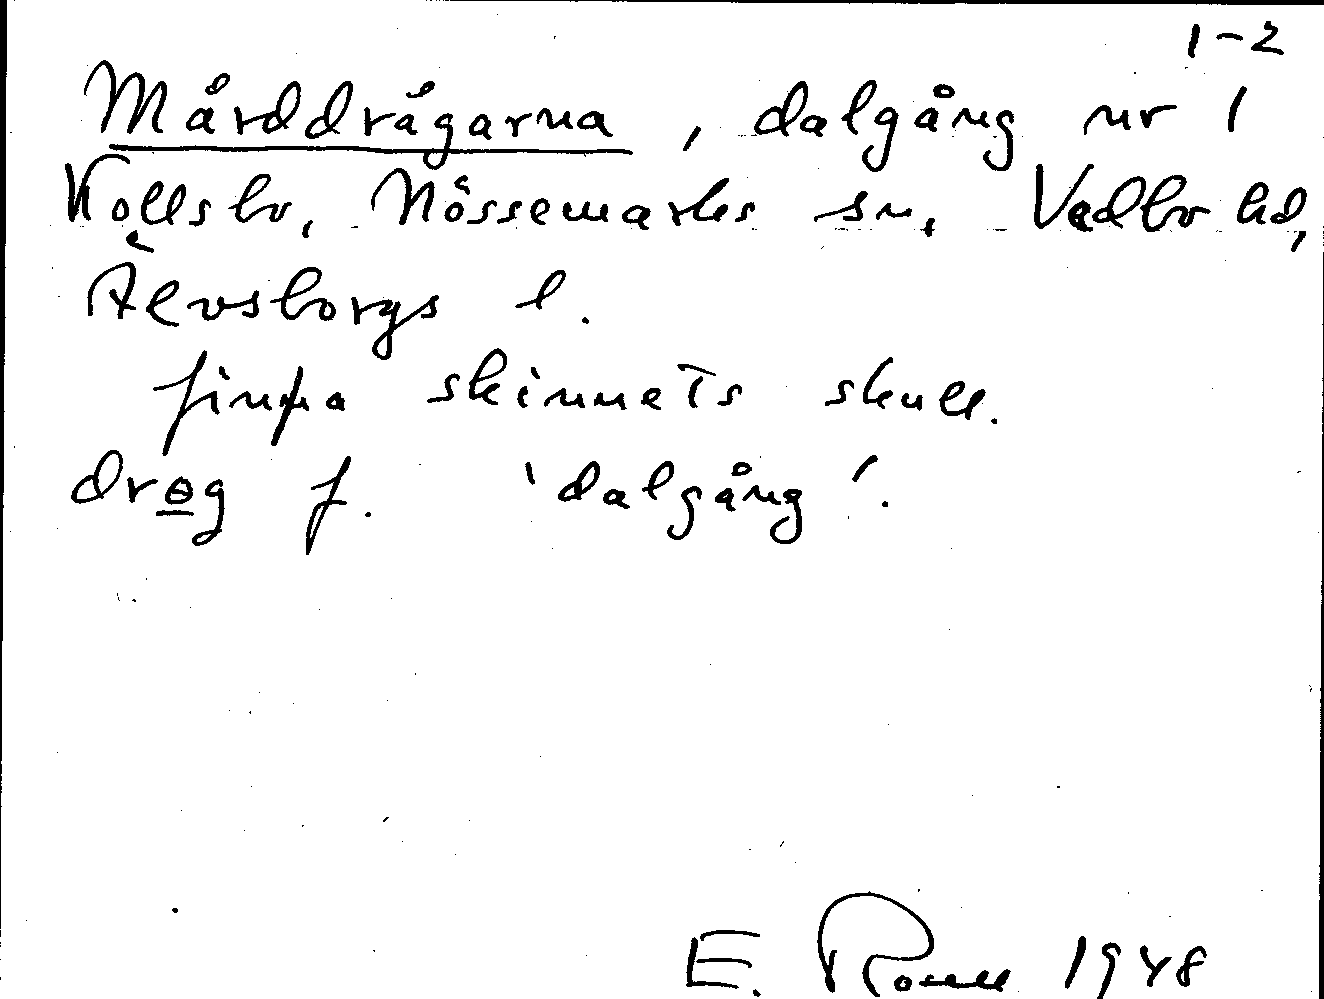 1-2
Mårddrågarna, dalgång nr 1
Kollsbo, Nössemarks sn, Vedbo hd,
Älvsborgs l.
finpa skinnets skull.
drɵg f. 'dalgång'.
E. Rosell 1948